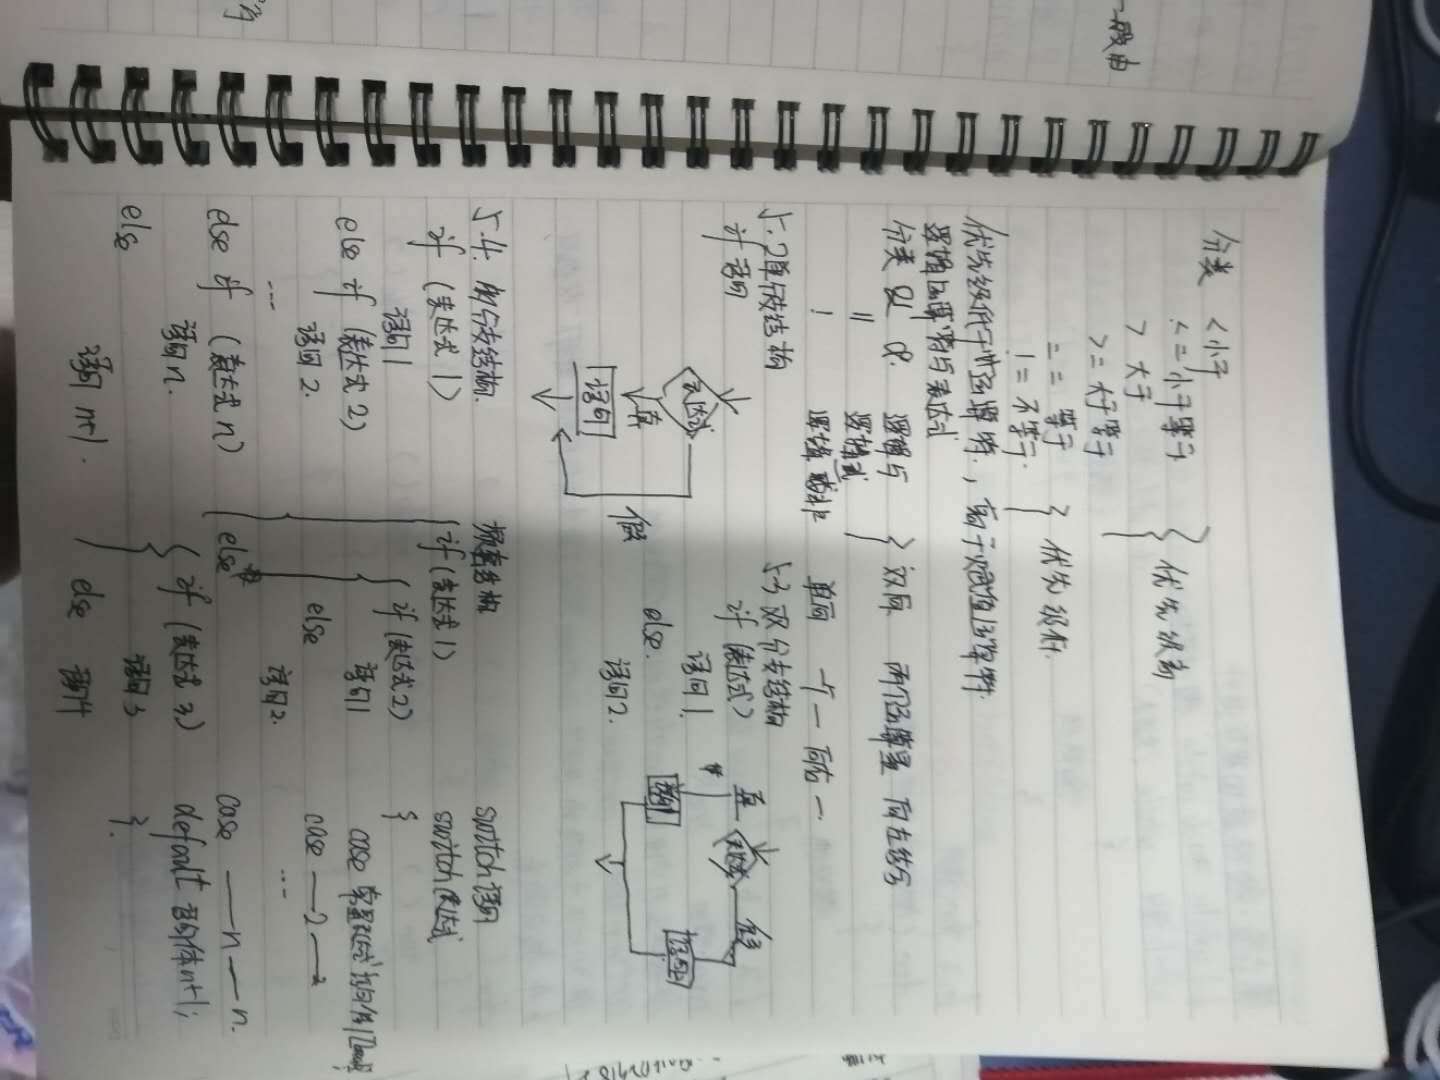 一般由
分类 < 小于
<= 小于等于
> 大于
>= 大于等于
优先级高
== 等于
!= 不等于
优先级低
优先级低于算术运算符,高于赋值运算符
逻辑运算符与表达式
分类 && 逻辑与
|| 逻辑或
双目 两个运算量 向左结合
! 逻辑非 单目 与一 向右一
5.2单分支结构
if 语句
表达式
真
语句
假
5.3 双分支结构
if (表达式)
语句1
else
语句2.
真
表达式
假
语句1
语句2
5.4.
分支结构.
if (表达式1)
语句1
else if (表达式2)
语句2.
...
else if (表达式n)
语句n.
else
语句n+1.
嵌套结构
if (表达式1)
if (表达式2)
语句1
else
语句2.
else
if (表达式3)
语句3
else 语句4
switch语句
switch表达式
{
case 常量表达式1: 语句体1 break;
case — 2 — 2
...
case — n — n.
default 语句体n+1;
}.